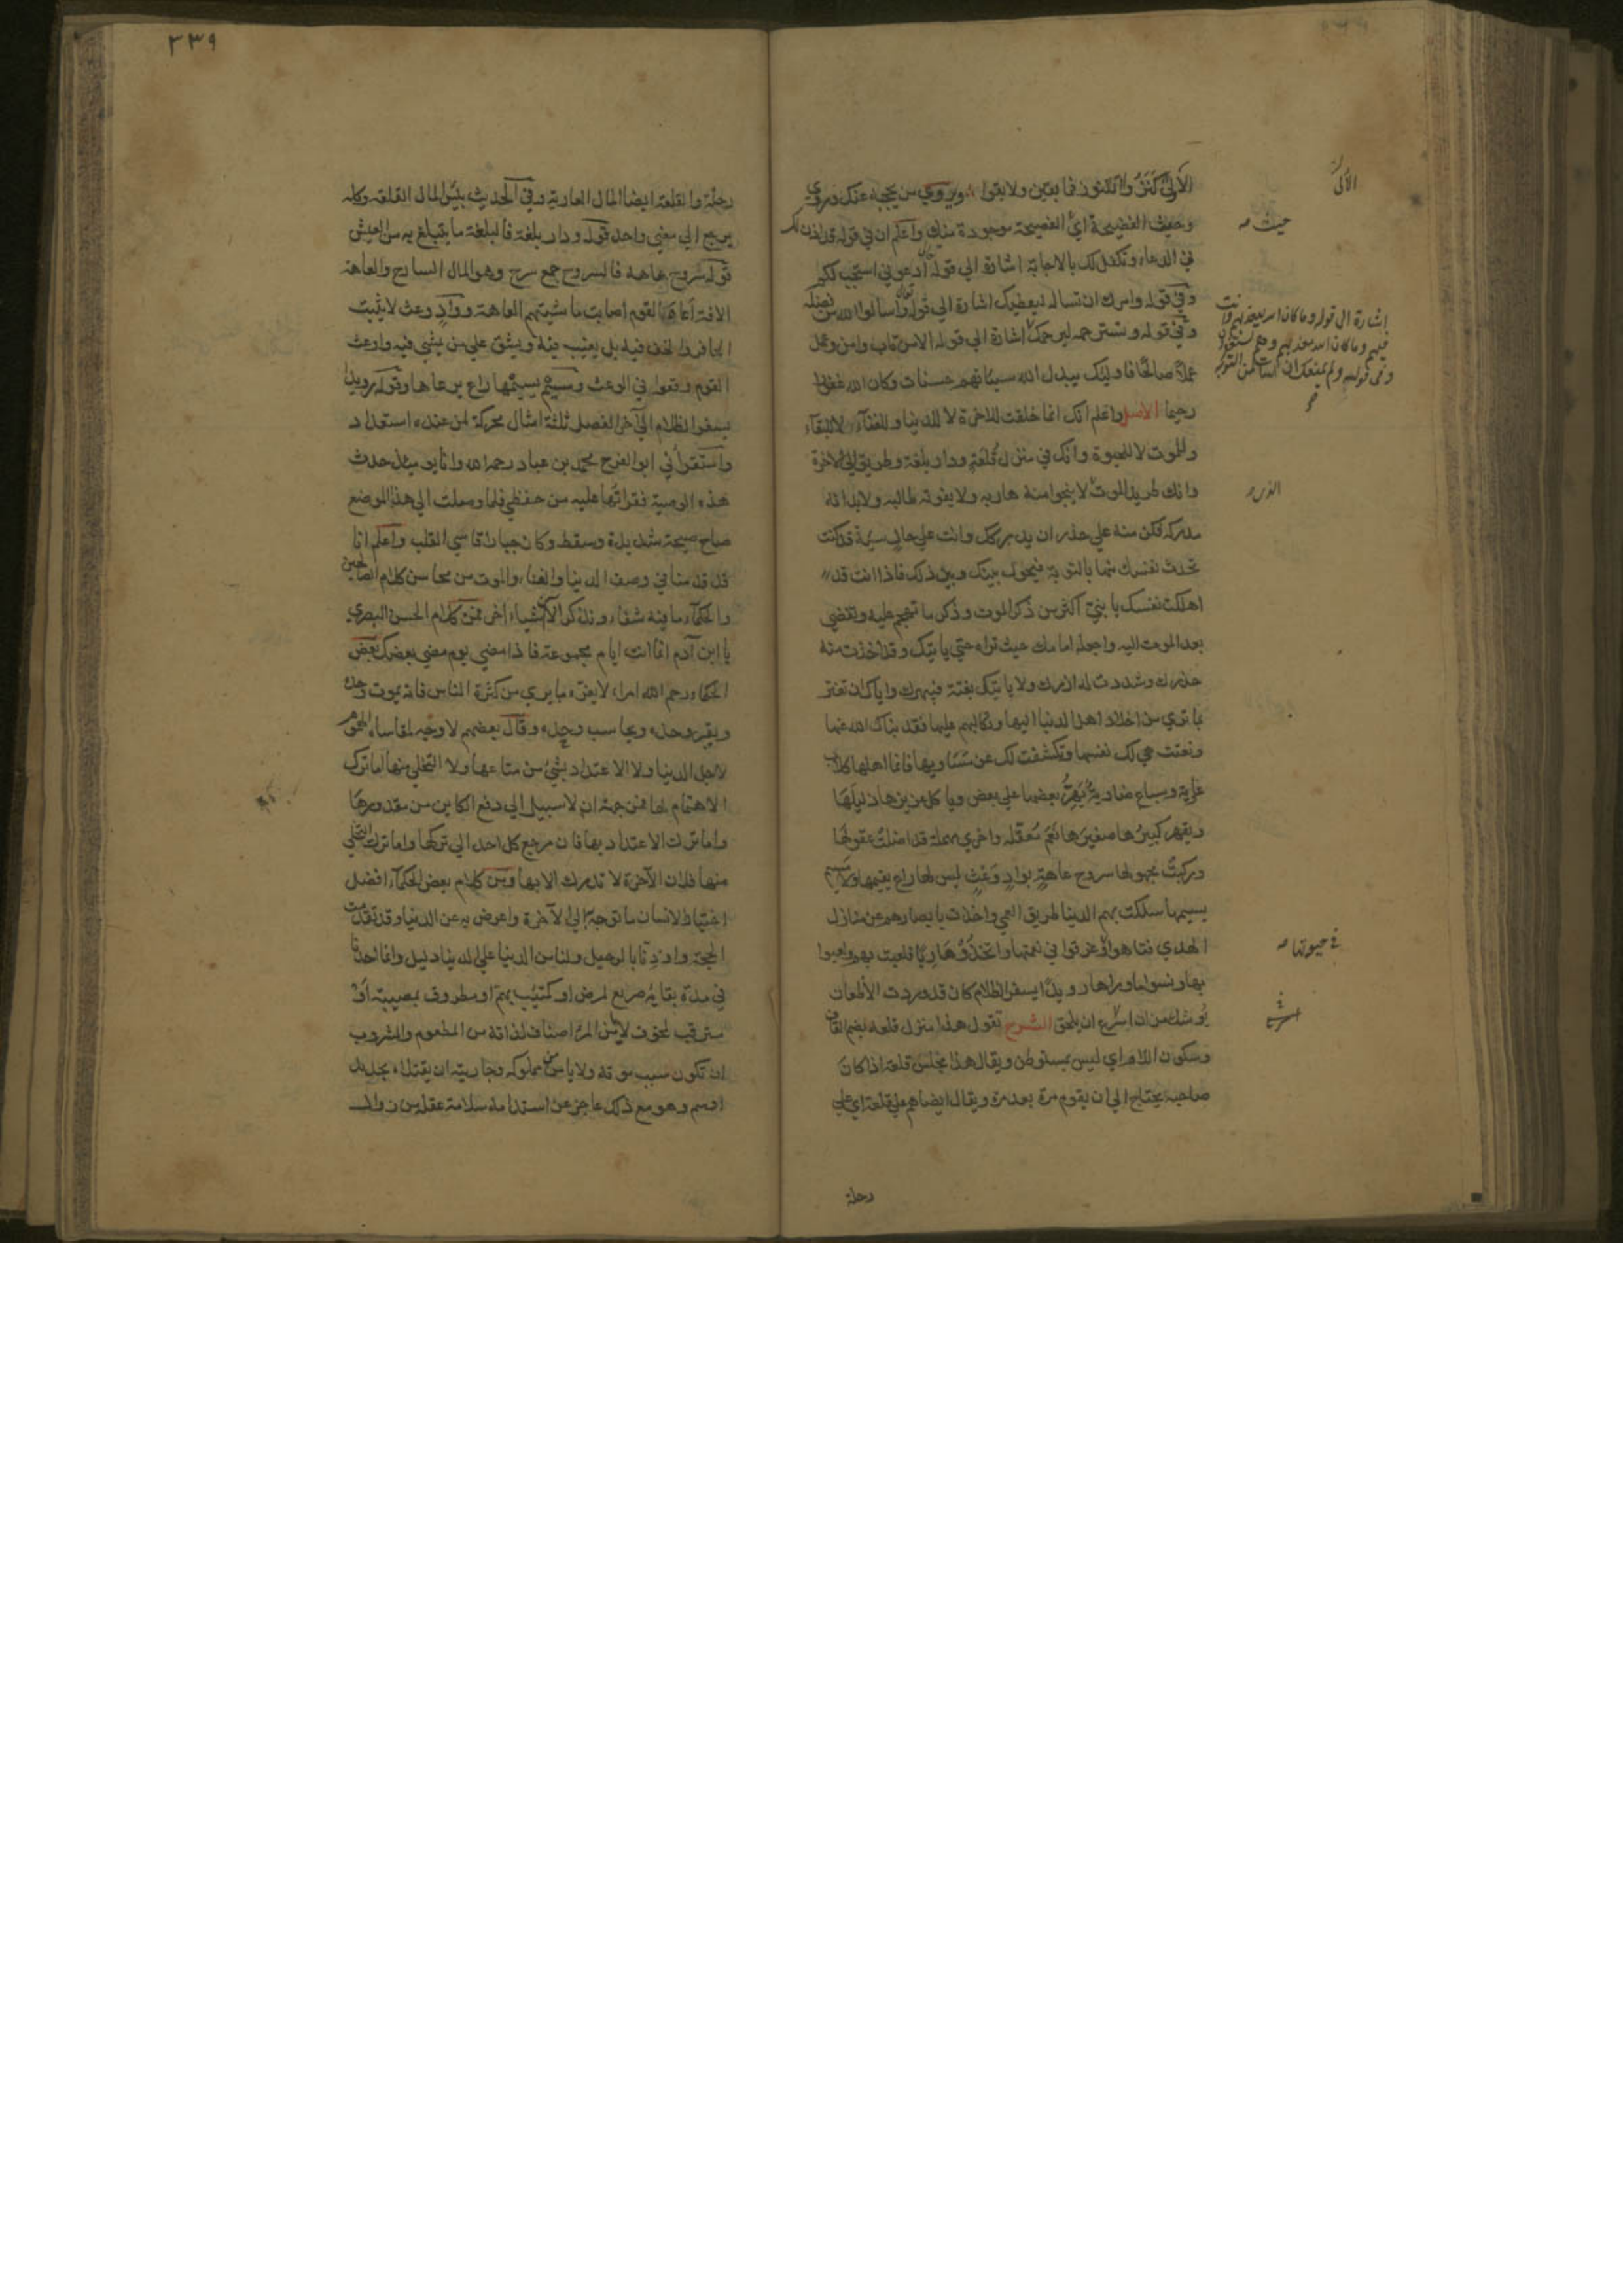 الألى كنزوا الكنوز فما بقين ولا بقوا ويروى من يحجبه عنك وروى
وحيث الفضيحة اي الفضيحة موجودة منك واعلم ان في قوله قد اذن لك
في الدعاء وتكفل لك بالاجابة اشارة الى قوله تعالى ادعوني استجب لكم
وفي قوله وامرك ان تساله ليعطيك اشارة الى قوله تعالى واسالوا الله من فضله
وفي قوله وتسترحمه ليرحمك اشارة الى قوله الا من تاب وامن وعمل
عملا صالحا فاوليك يبدل الله سيئاتهم حسنات وكان الله غفورا
رحيما الاصل واعلم انك انما خلقت للاخرة لا للدنيا وللفنآء لا للبقآء
وللموت لا للحيوة وانك في منزل قلعة ودار بلغة وطريق الى الاخرة
وانك طريد الموت لا ينجوا منه هاربه ولا يفوته طالبه ولا بد انه
مدركه فكن منه على حذر ان يدركك وانت على حال سيئة قد كنت
تحدث نفسك منها بالتوبة فيحول بينك وبين ذلك فاذا انت قد
اهلكت نفسك يا بني اكثر من ذكر الموت وذكر ما تهجم عليه وتفضي
بعد الموت اليه واجعله امامك حيث تراه حتى ياتيك وقد اخذت منه
حذرك وشددت له ازرك ولا ياتيك بغتة فيبهرك واياك ان تغتر
بما ترى من اخلاد اهل الدنيا اليها وتكالبهم عليها فقد نباك الله عنها
ونعتت هي لك نفسها وتكشفت لك عن مساويها فانما اهلها كلاب
عاوية وسباع ضارية يهر بعضها على بعض وياكل عزيزها ذليلها
ويقهر كبيرها صغيرها نعم معقلة واخرى مهملة قد اضلت عقولها
وركبت مجهولها سروح عاهة بواد وعث ليس لها راع يقيمها ولا مسيم
يسيمها سلكت بهم الدنيا طريق العمى واخذت بابصارهم عن منازل
الهدى فتاهوا وغرقوا في نعمتها واتخذوها ربا فلعبت بهم ولعبوا
بها ونسوا ما وراها رويدا يسفر الظلام كان قد وردت الاظعان
يوشك من ان اسرع ان يلحق الشرح تقول هذا منزل قلعة بضم القاف
وسكون اللام اي ليس بمستوطن ويقال هذا مجلس قلعة اذا كان
صاحبه يحتاج الى ان يقوم مرة بعد مرة ويقال ايضا هم على قلعة اي على
رحلة
الألى
حيث صح
اشارة الى قوله وما كان الله ليعذبهم وانت
فيهم وما كان الله معذبهم وهم يستغفرون
وفي قوله ولم يمنعك ان اسات من التوبة
الذي
في حيرتها صح
٣٣٩
رحلة والقلعة ايضا المال العارية وفي الحديث بئس المال القلعة وكله
يرجع الى معنى واحد قوله ودار بلغة فالبلغة ما يتبلغ به من العيش
قوله سروح عاهة فالسروح جمع سرح وهو المال السارح والعاهة
الافة اعاه القوم اصابت ماشيتهم العاهة وواد وعث لا يثبت
الحافر والخف فيه بل يغيب فيه ويشق على من يمشي فيه واوعث
القوم وقعوا في الوعث ومسيم يسيمها راع يرعاها وقوله رويدا
يسفر الظلام الى آخر الفصل ثلثة امثال محركة لمن عنده استعداد
واستقراني ابو الفرج محمد بن عباد رحمه الله وانا يومئذ حدث
هذه الوصية فقراتها عليه من حفظي فلما وصلت الى هذا الموضع
صاح صيحة شديدة وسقط وكان جبارا قاسي القلب واعلم انا
قد قدمنا في وصف الدنيا والفناء والموت من محاسن كلام الصالحين
والحكمآء ما فيه شفاء ونذكر الآن اشياء اخر فمن كلام الحسن البصري
يا ابن آدم انما انت ايام مجموعة فاذا مضى يوم مضى بعضك بعض
الحكماء رحم الله امراء لا يغره ما يرى من كثرة الناس فانه يموت وحده
ويقبر وحده ويحاسب وحده وقال بعضهم لا وجه لمقاساة الهموم
لاجل الدنيا ولا الاعتداد بشيء من متاعها ولا التخلي منها اما ترك
الاهتمام لها فمن جهة ان لا سبيل الى دفع الكاين من مقدورها
واما ترك الاعتداد بها فان مرجع كل احد الى تركها واما ترك التخلي
منها فلان الآخرة لا تدرك الا بها ومن كلام بعض الحكمآء افضل
اختيار الانسان ما توجه به الى الآخرة واعرض به عن الدنيا وقد تقدمت
الحجة واوذنا بالرحيل ولنا من الدنيا على الدنيا دليل وانما احدنا
في مدة بقايه صريع لمرض او كتئيب بهم او مطروف بمصيبة او
مترقب لمخوف لا يامن المرء اصناف لذاته من المطعوم والمشروب
ان تكون سبب موته ولا يامن مملوكه وجاريته ان يقتلاه بحديد
او سم وهو مع ذلك عاجز عن استدامة سلامة عقله من زوال